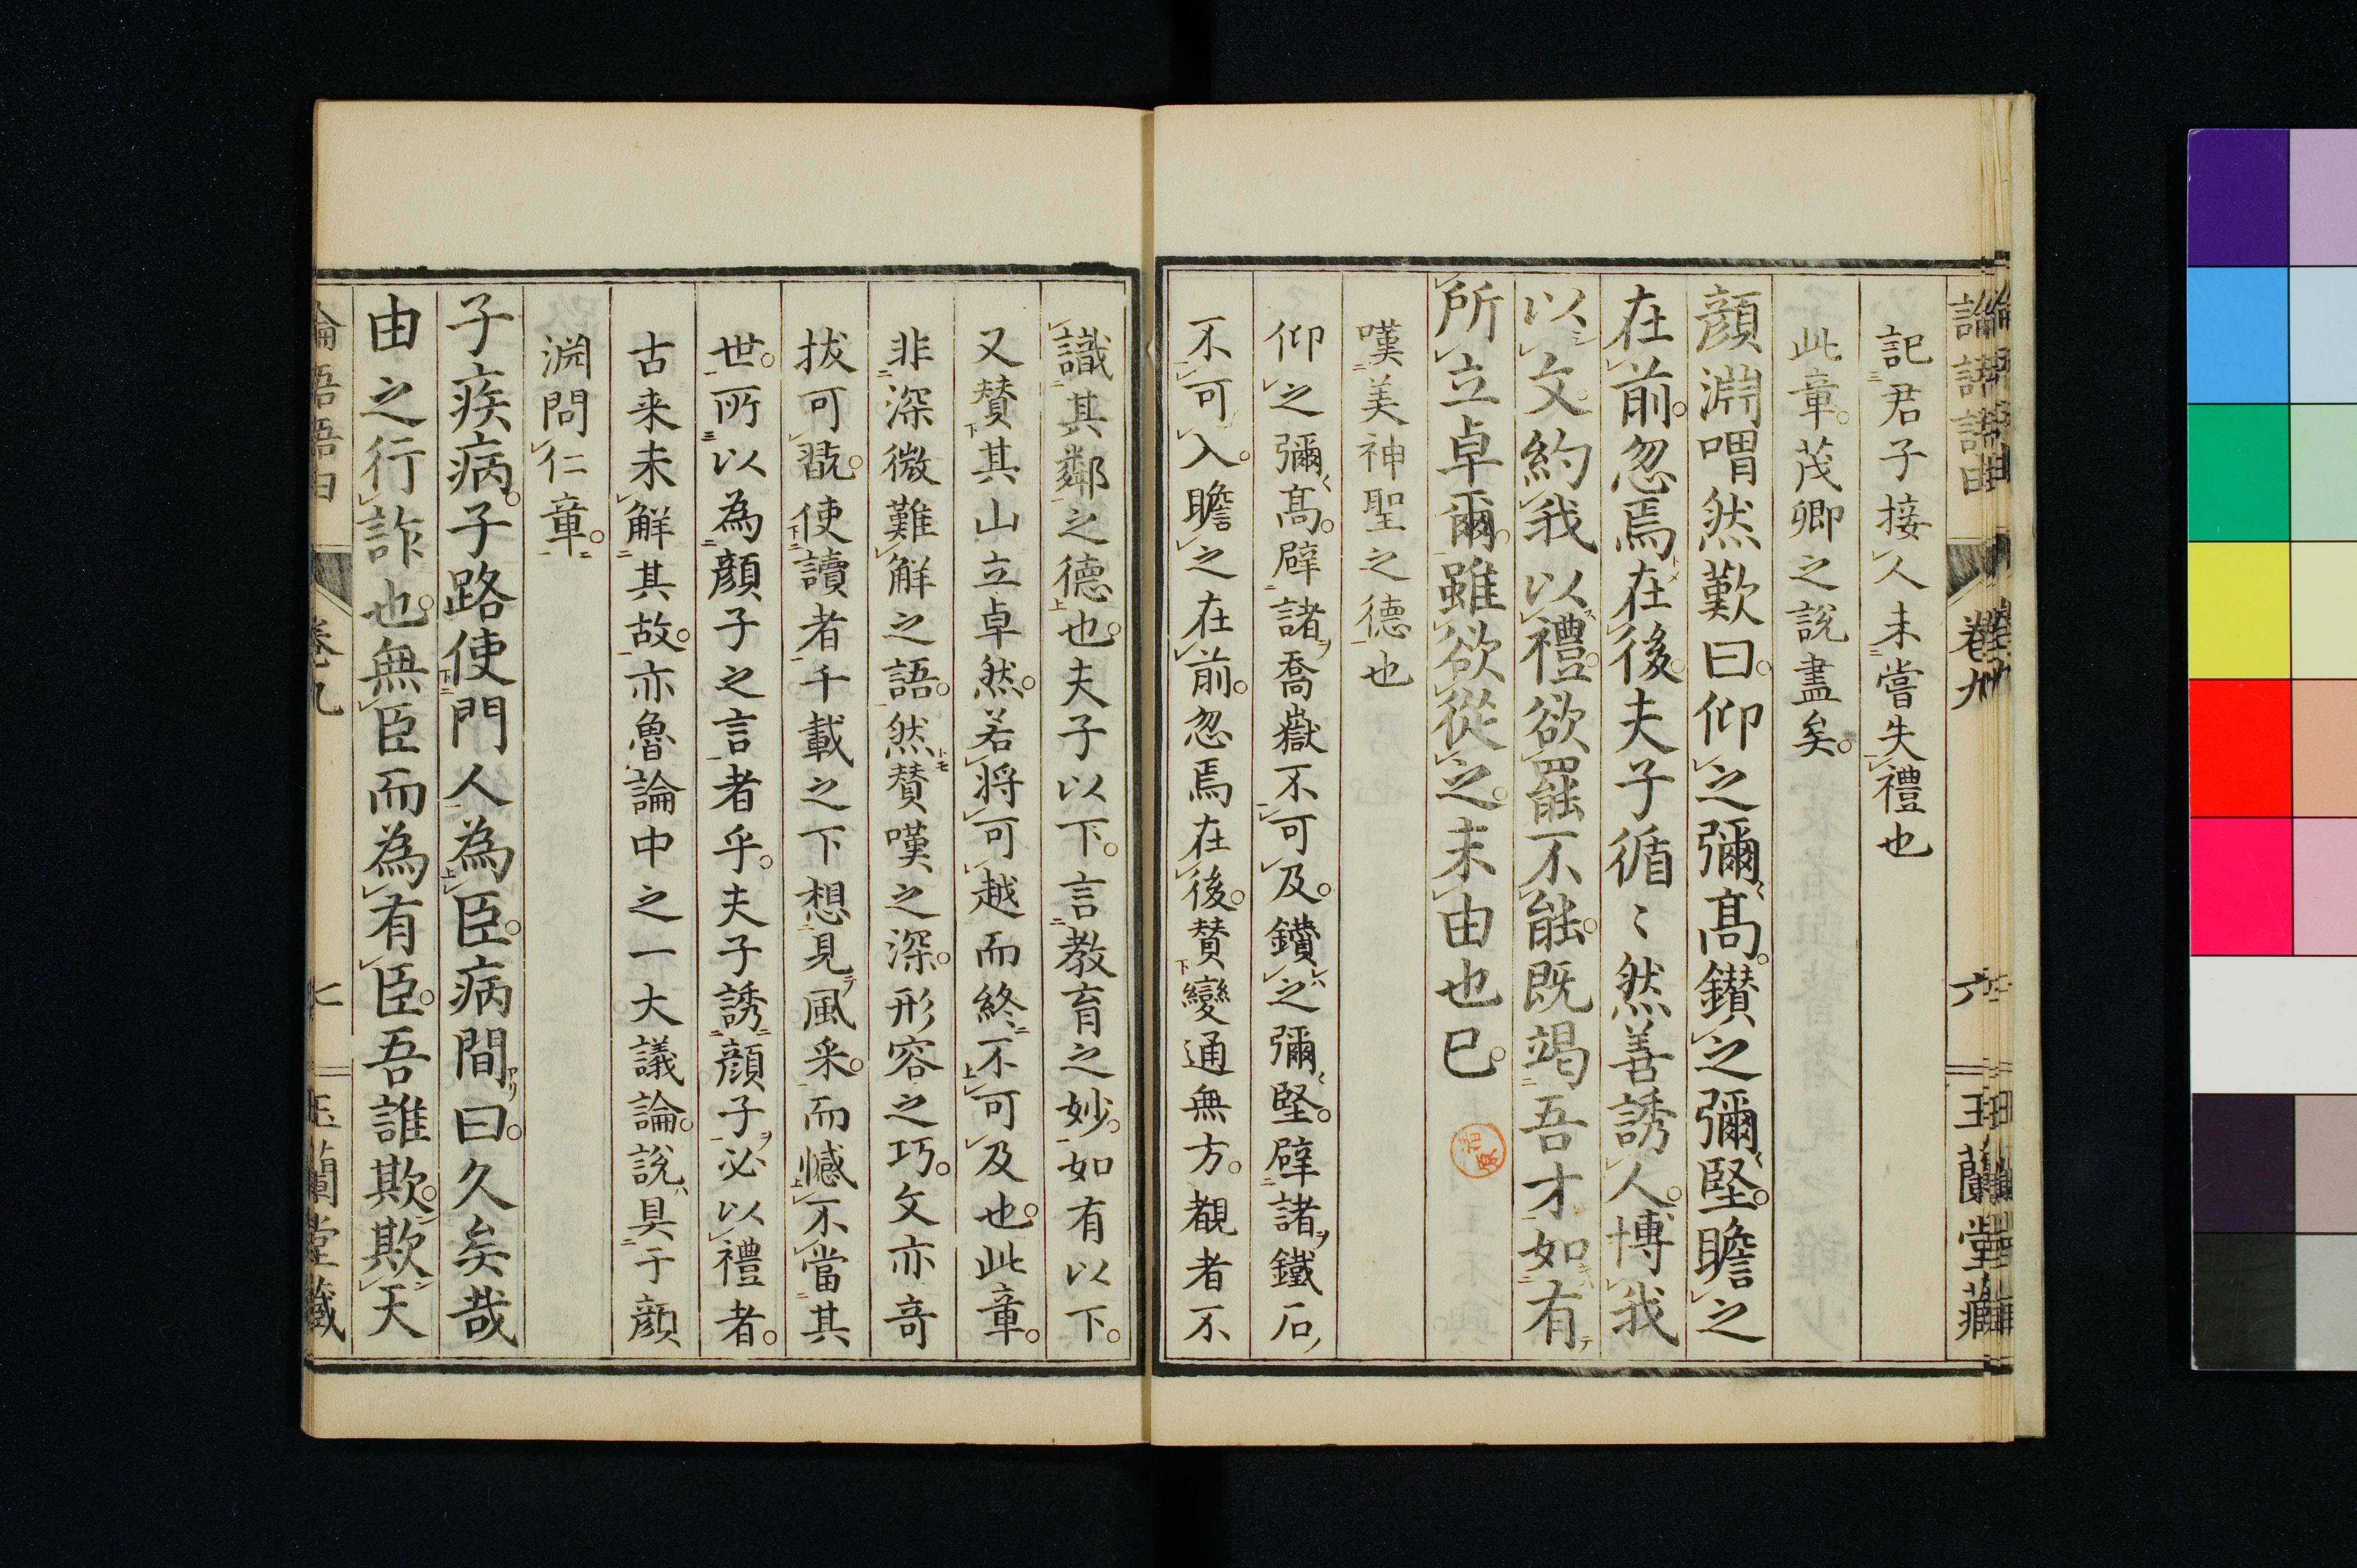 記君子接人未嘗失禮也
此章。茂卿之說盡矣。
顔淵喟然歎曰。仰之彌高。鑚之彌堅。瞻之
在前。忽焉在後。夫子循〻然善誘人。博我
以文。約我以禮。欲罷不能。既竭吾才。如有
所立卓爾。雖欲從之。末由也已。
嘆美神聖之德也
仰之彌高。辟諸喬嶽不可及。鑽之彌堅。辟諸鐵石
不可入。瞻之在前。忽焉在後。賛變通無方。覩者不
識其鄰之德也。夫子以下。言教育之妙。如有以下。
又賛其山立卓然。若將可越而終不可及也。此章。
非深微難解之語。然賛嘆之深。形容之巧。文亦竒
拔可翫。使讀者千載之下想見風采。而憾不當其
世。所以為顔子之言者乎。夫子誘顔子必以禮者。
古来未解其故。亦魯論中之一大議論。說具于顔
淵問仁章。
子疾病。子路使門人為臣。病間曰。久矣哉
由之行詐也。無臣而為有臣。吾誰欺。欺天
卷九
七
玉蘭堂藏